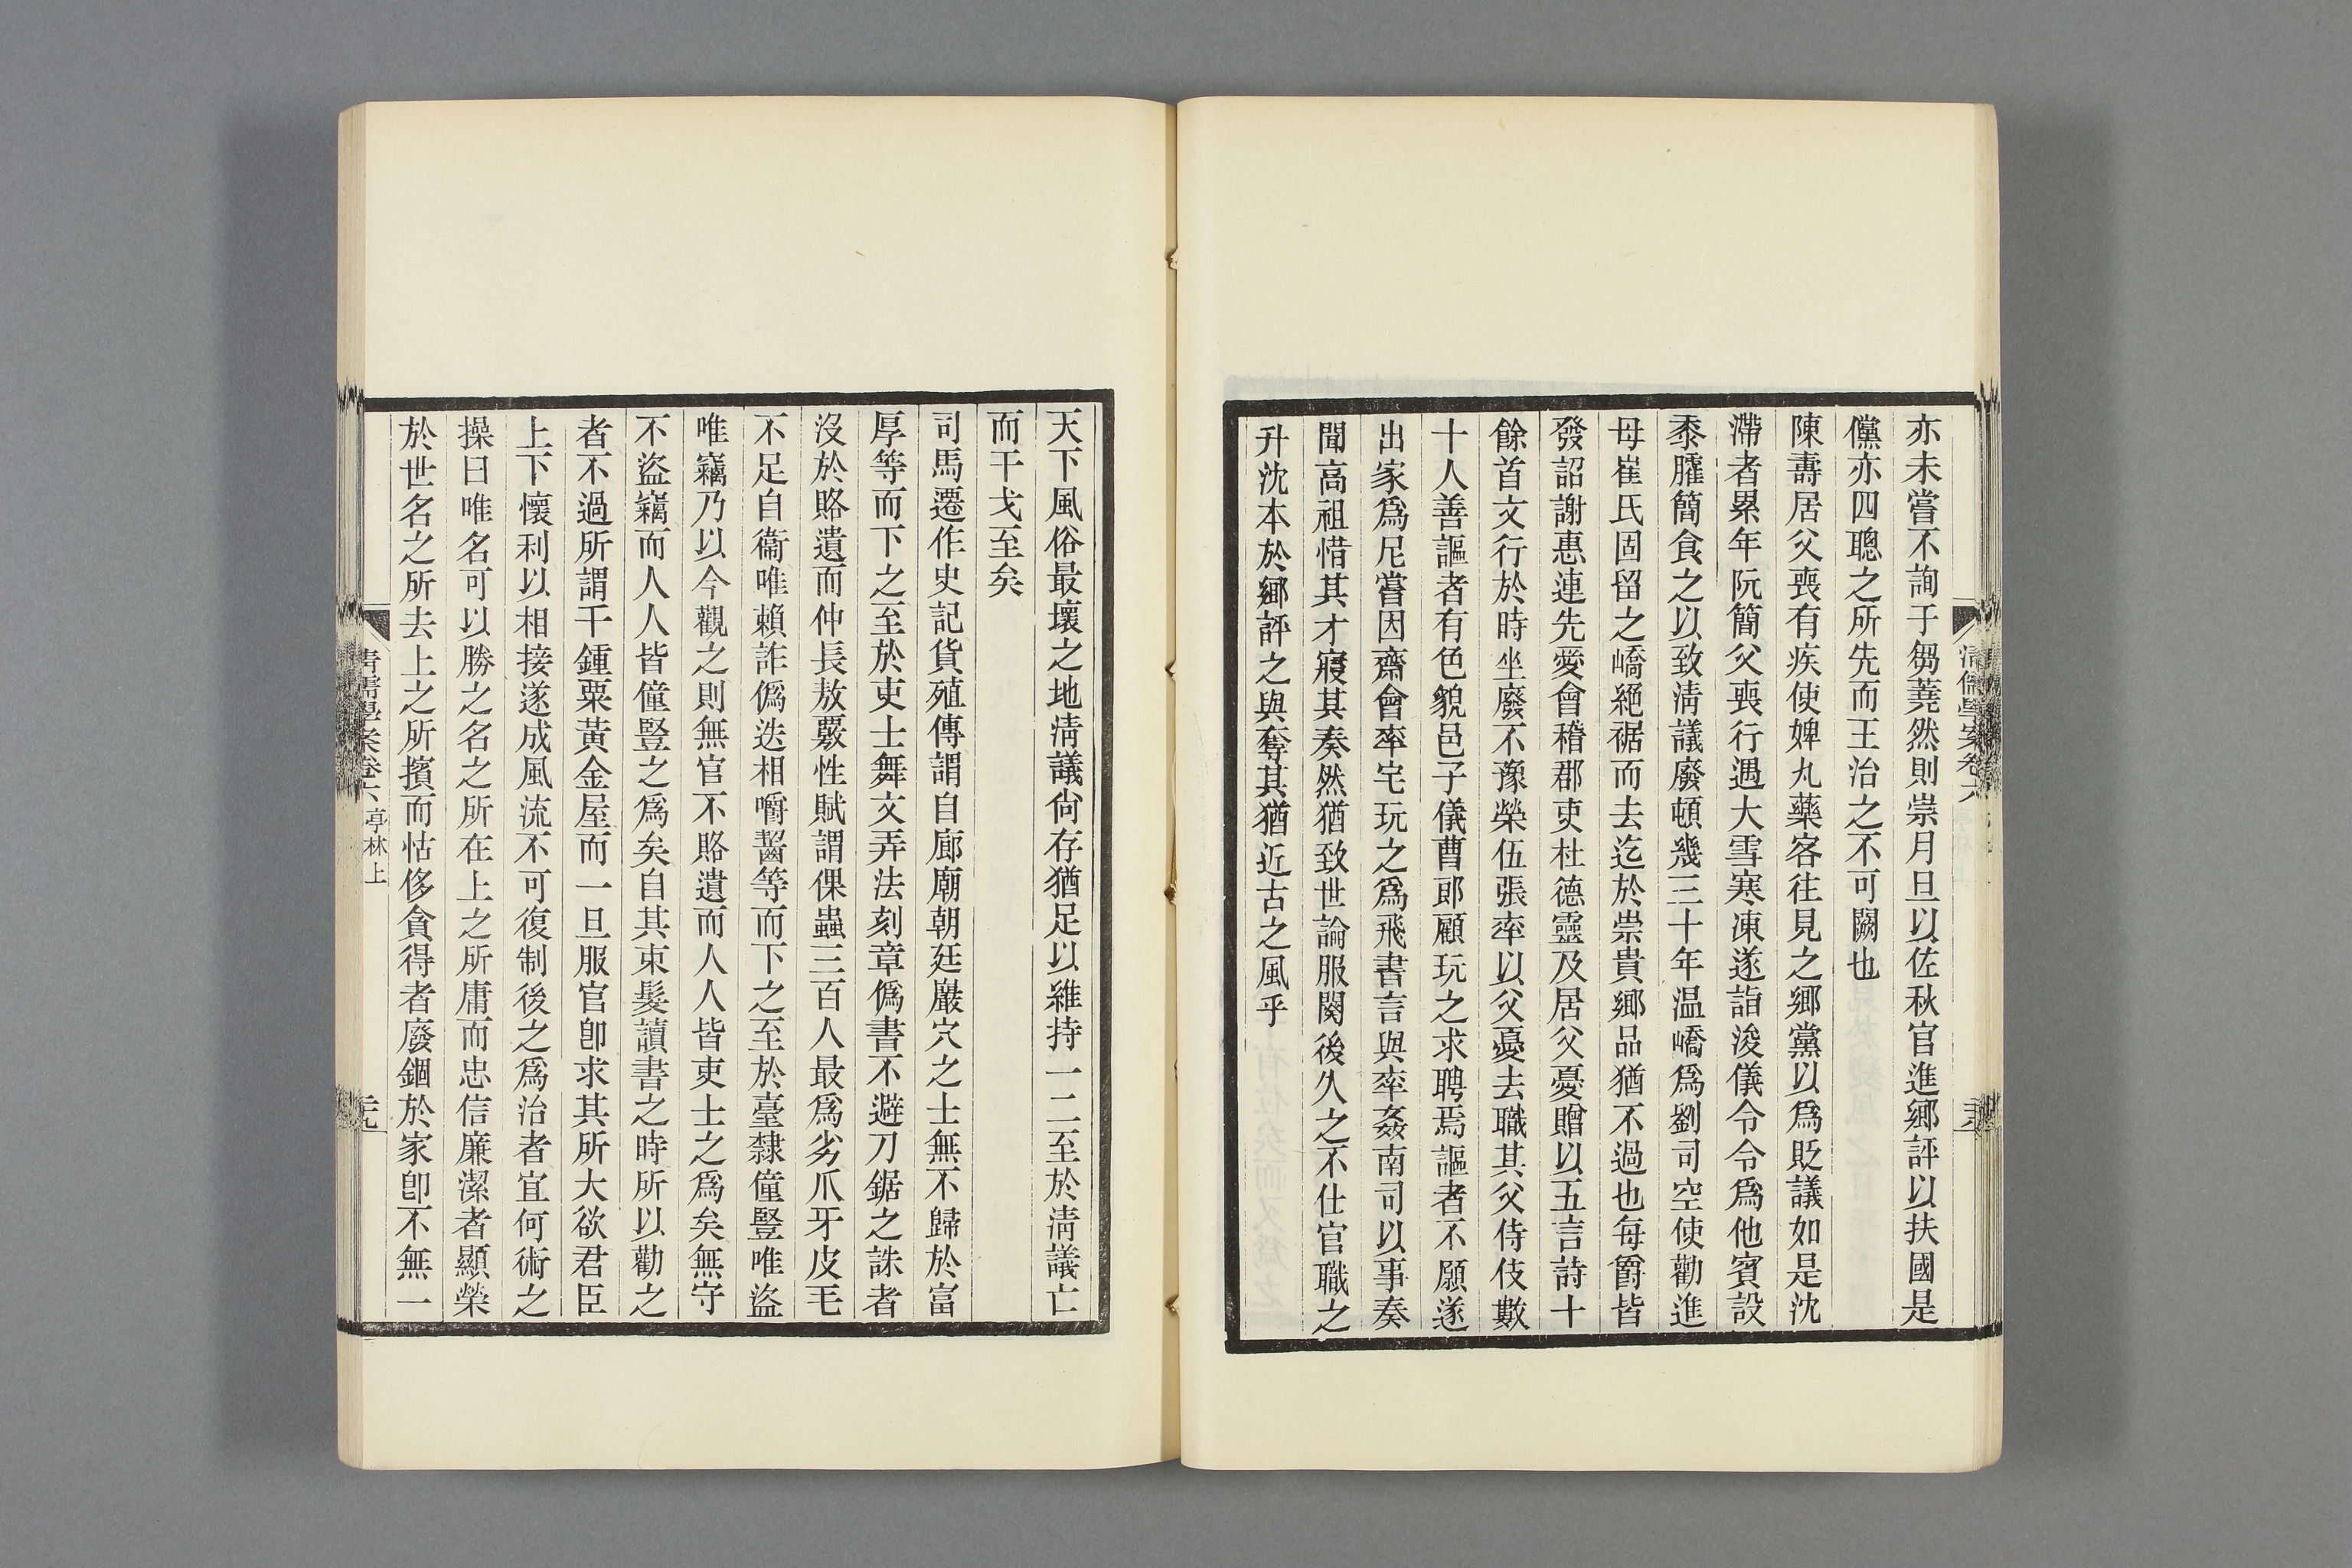 亦未嘗不詢于芻蕘然則崇月旦以佐秋官進鄉評以扶國是
儻亦四聰之所先而王治之不可闕也
陳壽居父喪有疾使婢丸藥客往見之鄉黨以爲貶議如是沈
滯者累年阮簡父喪行遇大雪寒凍遂詣浚儀令令爲他賓設
黍臛簡食之以致淸議廢頓幾三十年温嶠爲劉司空使勸進
母崔氏固留之嶠絕裾而去迄於崇貴鄉品猶不過也每爵皆
發詔謝惠連先愛會稽郡吏杜德靈及居父憂贈以五言詩十
餘首文行於時坐廢不豫榮伍張率以父憂去職其父侍伎數
十人善謳者有色貌邑子儀曹郎顧玩之求聘焉謳者不願遂
出家爲尼嘗因齋會率宅玩之爲飛書言與率姦南司以事奏
聞高祖惜其才寢其奏然猶致世論服闋後久之不仕官職之
升沈本於鄉評之與奪其猶近古之風乎
清儒學案卷六
天下風俗最壞之地淸議尙存猶足以維持一二至於淸議亡
而干戈至矣
司馬遷作史記貨殖傳謂自廊廟朝廷巖穴之士無不歸於富
厚等而下之至於吏士舞文弄法刻章僞書不避刀鋸之誅者
沒於賂遺而仲長敖覈性賦謂倮蟲三百人最爲劣爪牙皮毛
不足自衞唯賴詐僞迭相嚼齧等而下之至於臺隸僮豎唯盜
唯竊乃以今觀之則無官不賂遺而人人皆吏士之爲矣無守
不盜竊而人人皆僮豎之爲矣自其束髮讀書之時所以勸之
者不過所謂千鍾粟黃金屋而一旦服官卽求其所大欲君臣
上下懷利以相接遂成風流不可復制後之爲治者宜何術之
操曰唯名可以勝之名之所在上之所庸而忠信廉潔者顯榮
於世名之所去上之所擯而怙侈貪得者廢錮於家卽不無一
清儒學案卷六 亭林上 二十九